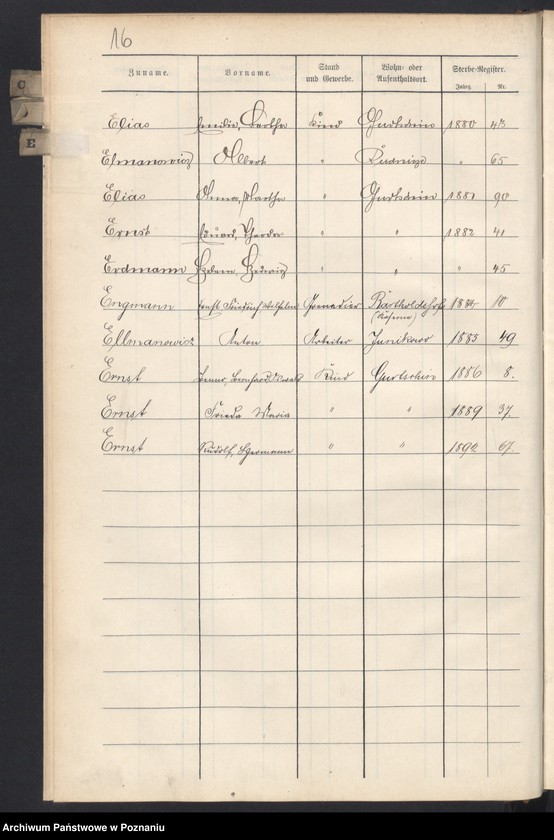 16
Zuname. Vorname. Stand und Gewerbe. Wohn- oder Aufenthaltsort. Sterbe-Register.
Jahrg. Nr.
C
E
Elias Bertha Kind Gurtschin 1880 43
Esmanowicz Albert " Rudnicze " 65
Elias Anna, Martha " Gurtschin 1881 90
Ernst Eduard, Theodor " " 1882 41
Erdmann Hedwig " " " 45
Engmann Ernst Friedrich Wilhelm Grenadier Bartholdshof 10
(Kaserne)
Ellmanowicz Anton Arbeiter Junikowo 1885 49
Ernst Bernhard Kind Gurtschin 1886 8.
Ernst Frieda Maria " " 1889 37.
Ernst Rudolf, Hermann " " 1892 67.
Archiwum Państwowe w Poznaniu